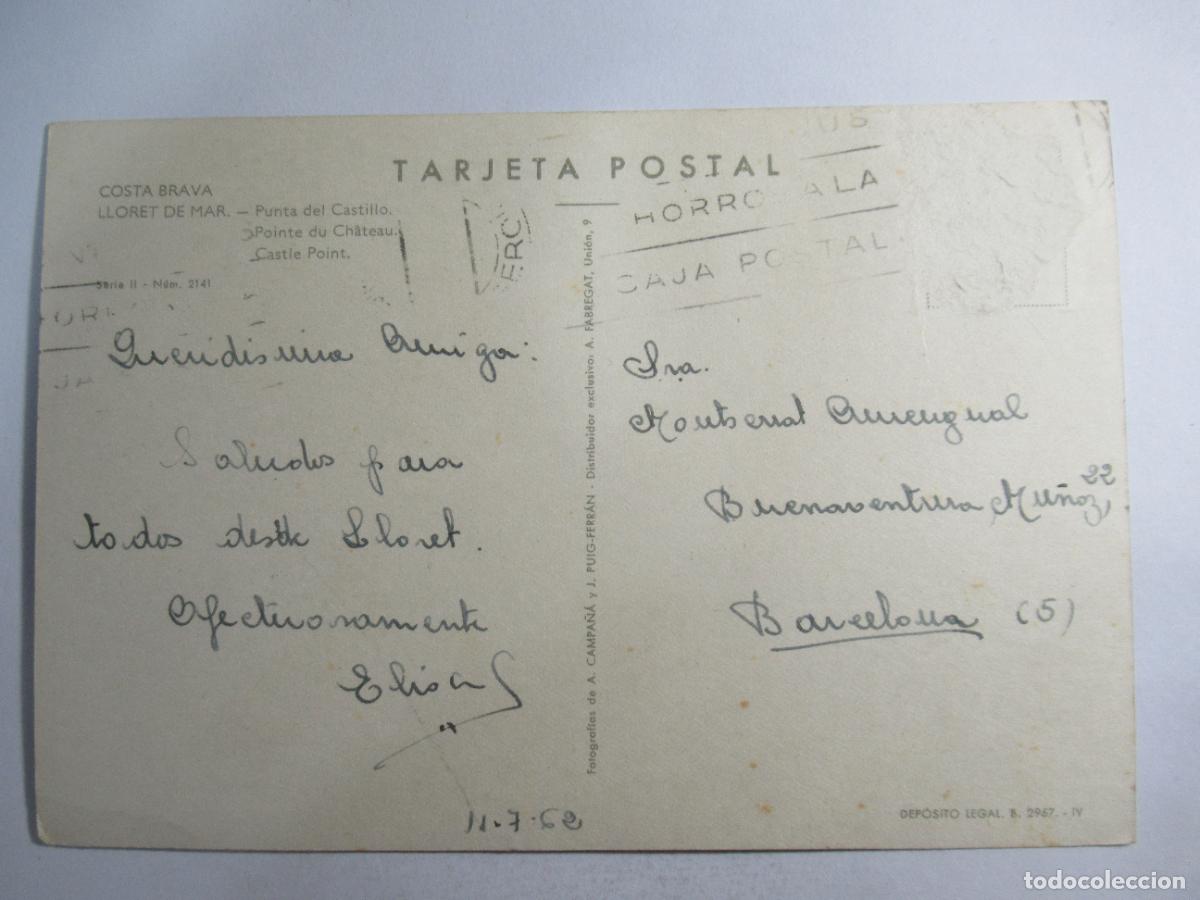 TARJETA POSTAL
COSTA BRAVA
LLORET DE MAR. — Punta del Castillo.
Pointe du Château.
Castle Point.
Serie II - Núm. 2141
HORRO ALA
CAJA POSTAL
Queridisima Amiga:
Saludos para
todos desde Lloret.
Afectuosamente
Elisa
11-7-62
Fotografías de A. CAMPAÑÁ y J. PUIG-FERRÁN - Distribuidor exclusivo: A. FABREGAT, Unión, 9
Sra.
Montserrat Amengual
Buenaventura Muñoz, 22.
Barcelona (5)
DEPÓSITO LEGAL. B. 2967. - IV
todocoleccion